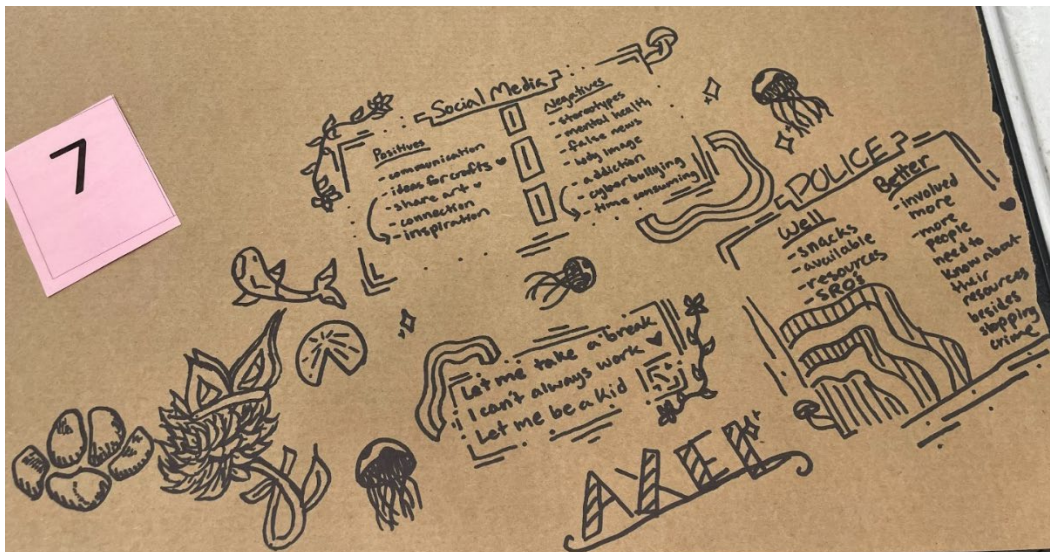 7
Social Media
Positives
- communication
- ideas for crafts ♥
- share art ♥
- connection
- inspiration
Negatives
- stereotypes
- mental health
- false news
- body image
- addiction
- cyberbullying
- time consuming
POLICE
Well
- snacks
- available
- resources
- SROS
Better
- involved
more
- more
people
need to
know about
their
resources
besides
stopping
crime
Let me take a break
I can't always work ♥
Let me be a kid